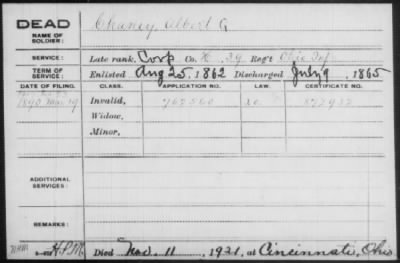 DEAD
NAME OF SOLDIER:
Chaney, Albert G
SERVICE:
Late rank, Corp Co. H, 39 Reg't Ohio Inf
TERM OF SERVICE:
Enlisted Aug 25, 1862 Discharged July 9, 1865
DATE OF FILING. CLASS. APPLICATION NO. LAW. CERTIFICATE NO.
1890 Invalid,
Widow,
Minor,
ADDITIONAL SERVICES:
REMARKS:
H.P.M. Died Nov. 11, 1921, at Cincinnati, Ohio